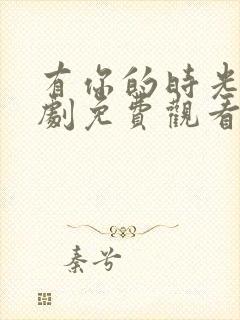 有你的時光
劇免費觀看
秦兮